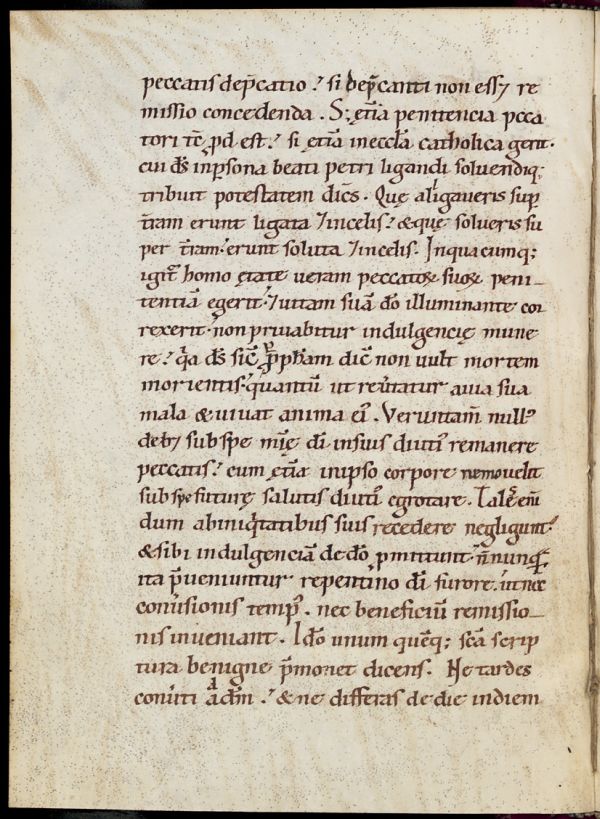 peccatis dep̄catio? si dep̄canti non ess& re
missio concedenda. S; ęt̄ia penitencia pcca
tori tc̄ pdest? si ętiā ineccl̄a catholica gerit.
cui d̄s inp̱sona beati petri ligandi soluendiq;
tribuit potestatem dic̄s. Quę aligaueris sup̱
t̄ram erunt ligata ⁊incelis? & quę solueris su
per t̄ram. erunt soluta ⁊incelis. Inquacumq;
igit̄ homo ętate ueram peccatoꝝ suoꝝ peni-
tentiā egerit. ⁊uitam suā d̄o illuminante cor
rexerit. non priuabitur indulgencię mune
re? q̄a d̄s sic̄ ꝑph̄am dic̄ non uult mortem
morientis. quantū ut reūtatur auia sua
mala & uiuat anima ei'. Veruntam̄ null'
deb& sub spe mi͞ę d̄i insuis diuti' remanere
peccatis? cum ętiā inipso corpore nemo uelit
sub spe futurę salutis diuti' egrotare. Tales̄ en̄i
dum abiniq̄tatibus suis recedere negligunt?
& sibi indulgenciā de d̄o ꝓmittunt. n̄nunq̄
ita p̄ueniuntur repentino d̄i furore. ut nec
conūsionis temp'. nec beneficiū remissio-
nis inueniant. Id̄o unum quēq; sc̄a scrip
tura benigne p̄monet dicens. Ne tardes
conūti ad d̄m? & ne differas de die indiem